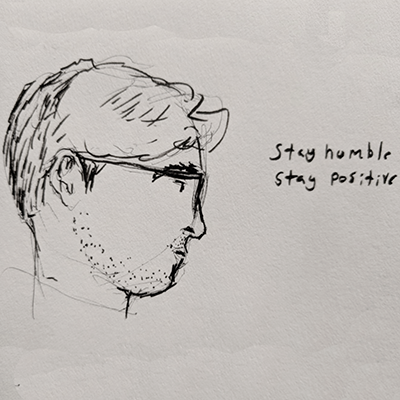 Stay humble
Stay positive